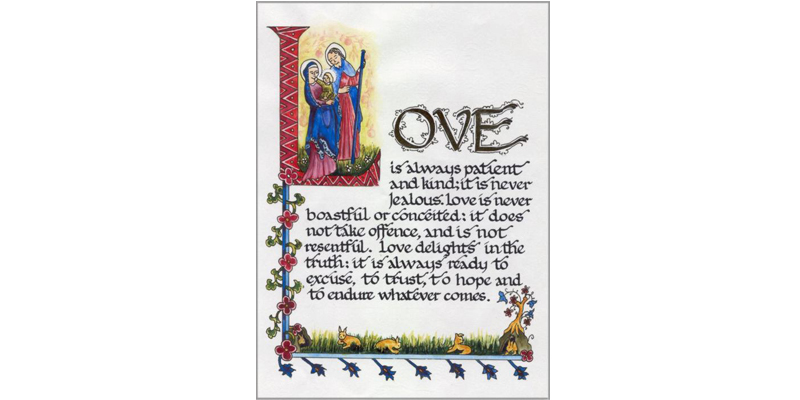 LOVE
is always patient
and kind; it is never
jealous. Love is never
boastful or conceited: it does
not take offence, and is not
resentful. Love delights in the
truth: it is always ready to
excuse, to trust, to hope and
to endure whatever comes.